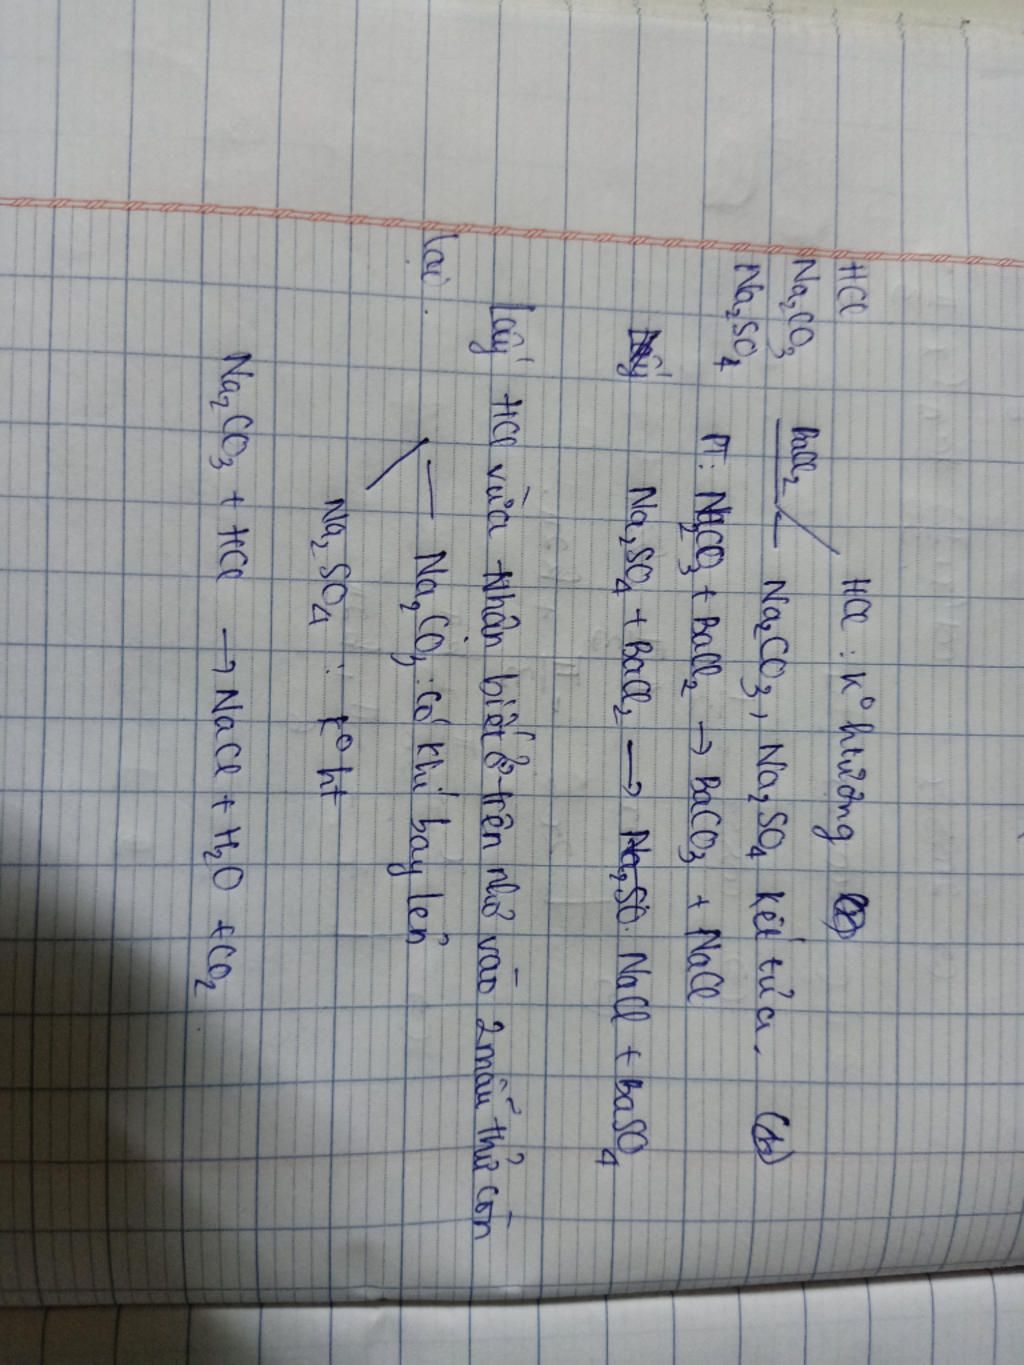 HCl
Na₂CO₃
Na₂SO₄
BaCl₂
HCl : K° hương
Na₂CO₃, Na₂SO₄ Kết tủa.
PT: Na₂CO₃ + BaCl₂ → BaCO₃ + NaCl
Na₂SO₄ + BaCl₂ → NaCl + BaSO₄
Lấy HCl vừa nhân biết ở trên nhỏ vào 2 mẫu thử còn
lại.
Na₂CO₃ : có khí bay lên
Na₂SO₄ : K° ht
Na₂CO₃ + HCl → NaCl + H₂O + CO₂